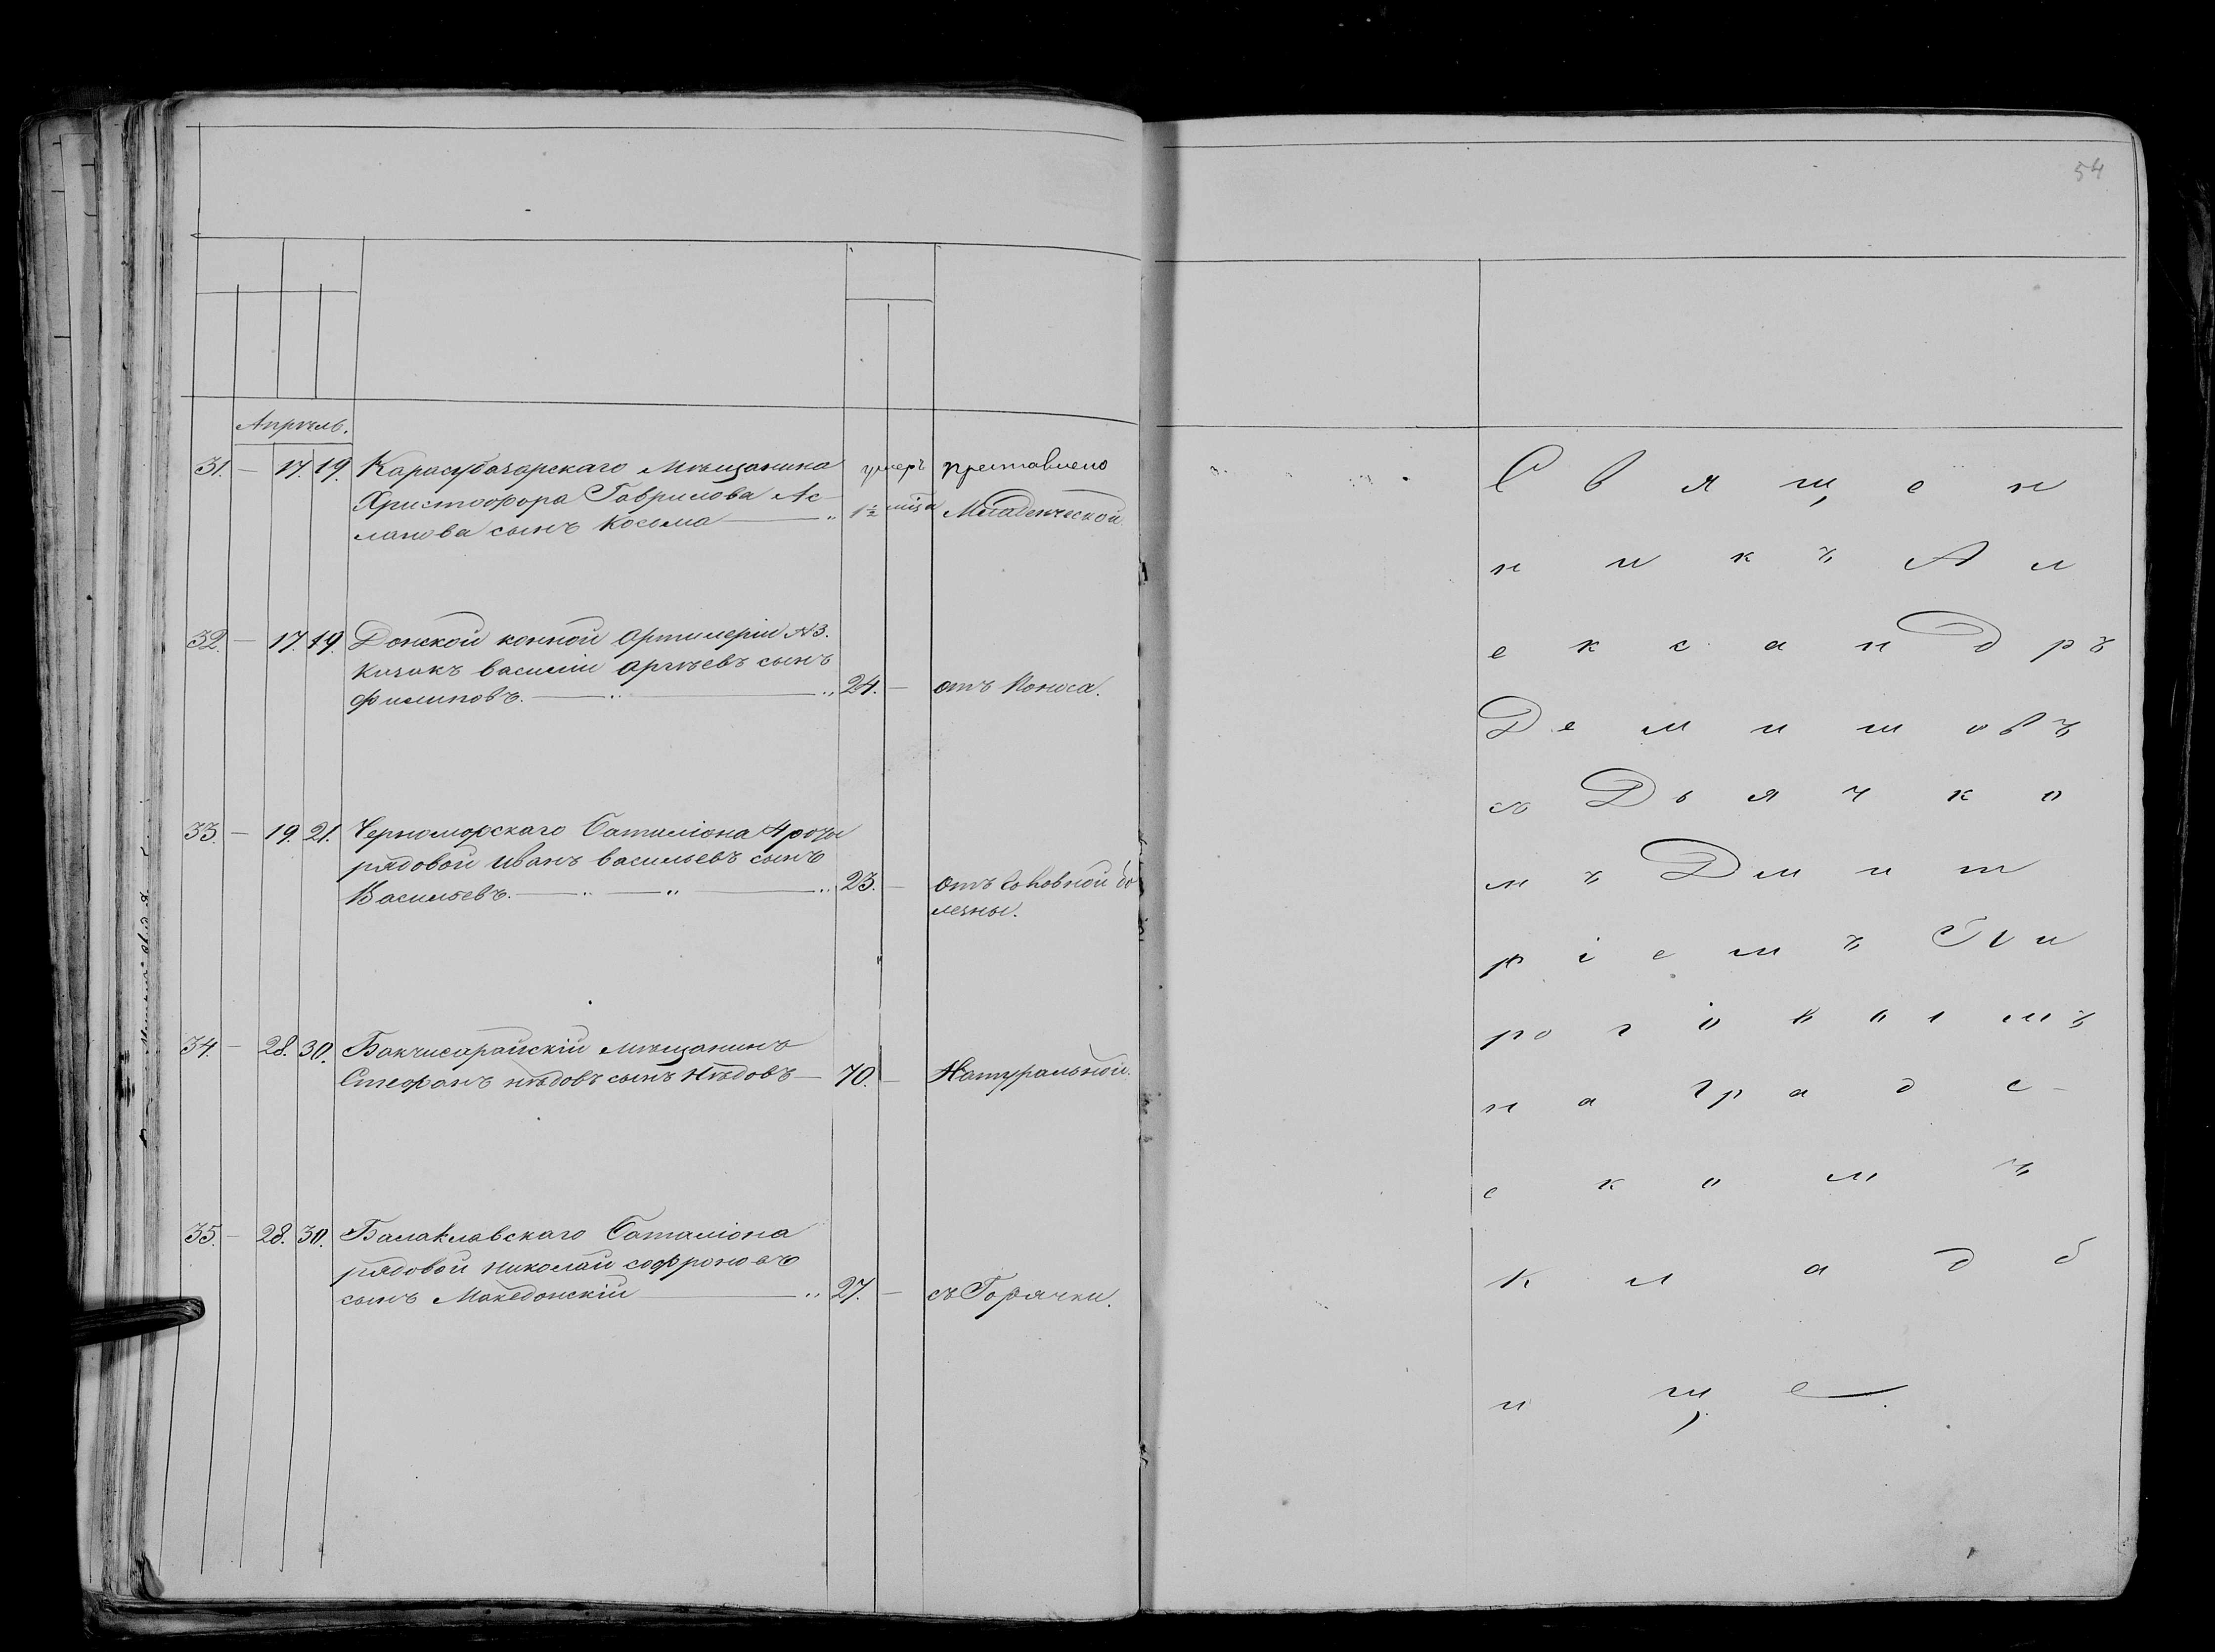 54
Апрѣль.
31. — 17. 19. Карасубазарскаго мѣщанина умеръ
Христофора Гаврилова Ас- 1½ Младенческой
ланова сынъ Косьма — „
32. — 17. 19. Донской конной артилеріи №3.
казакъ василій
филиповъ. — „ — „ 24. — отъ Поноса.
33. — 19. 21. Черноморскаго Баталіона 4 роты
рядовой иванъ васильевъ сынъ
Васильевъ. — „ — „ — „ 23. — отъ Головной бо
лезны.
34. — 28. 30. Бакчисарайскій мѣщанинъ
Стефанъ нѣдовъ сынъ Нѣдовъ — 70. — Натуральной.
35. — 28. 30. Балаклавскаго Баталіона
рядовой николай софроновъ
сынъ Македонскій — „ 27. — съ Горячки.
С в я щ е н
н и к ъ А л
е к с а н д р ъ
Д е м и ш о в ъ
съ Д ь я ч к о
м ъ Д м и т
р і е м ъ
н а г р а д с -
к о м ъ
к л а д б
и щ е.